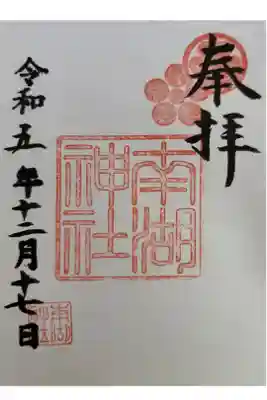 奉拝
南湖神社
令和五年十二月十七日